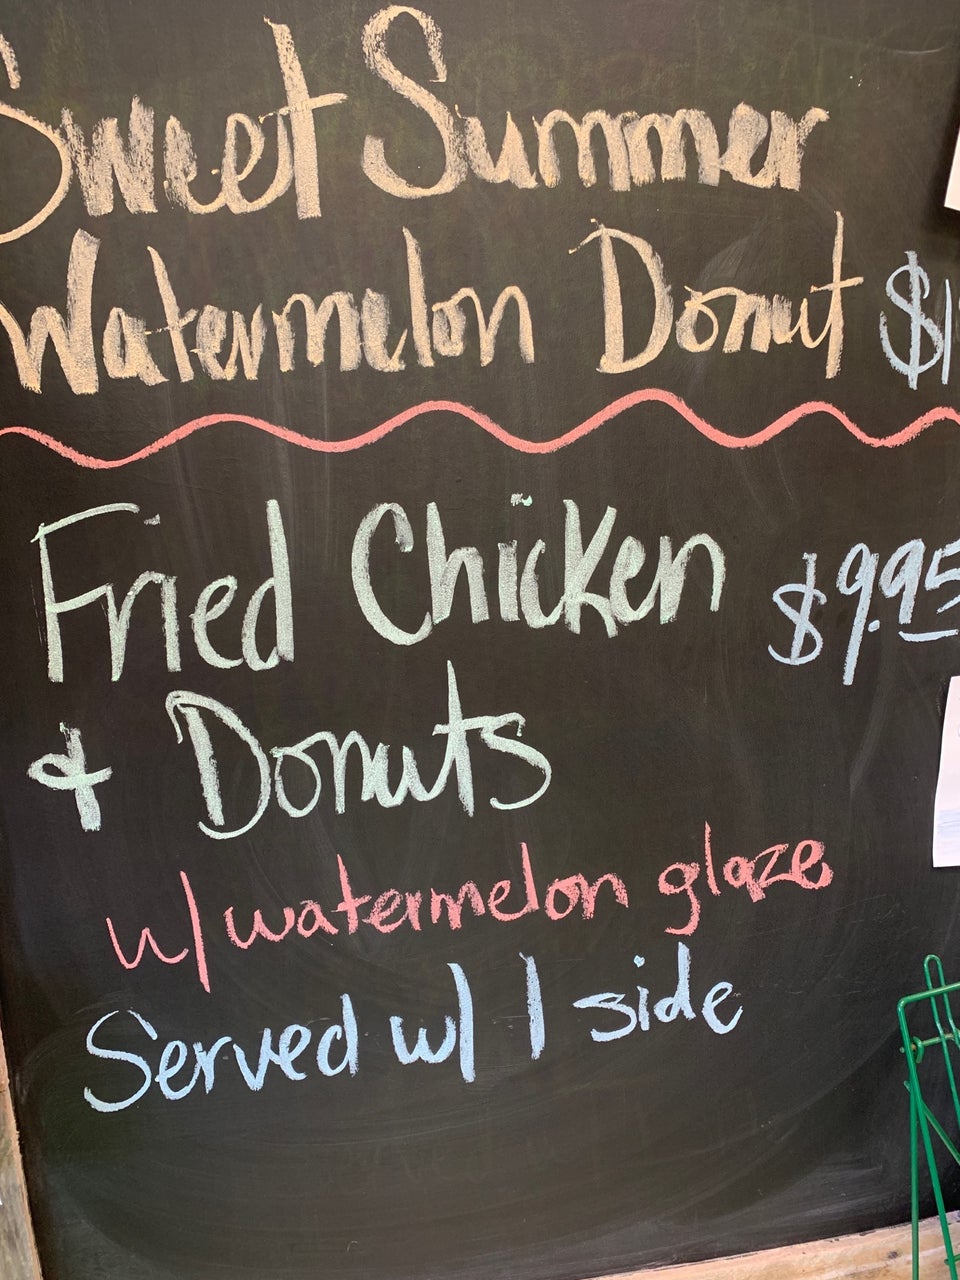 Sweet Summer
Watermelon Donut $1
Fried Chicken $9.95
& Donuts
w/ watermelon glaze
Served w/ 1 side